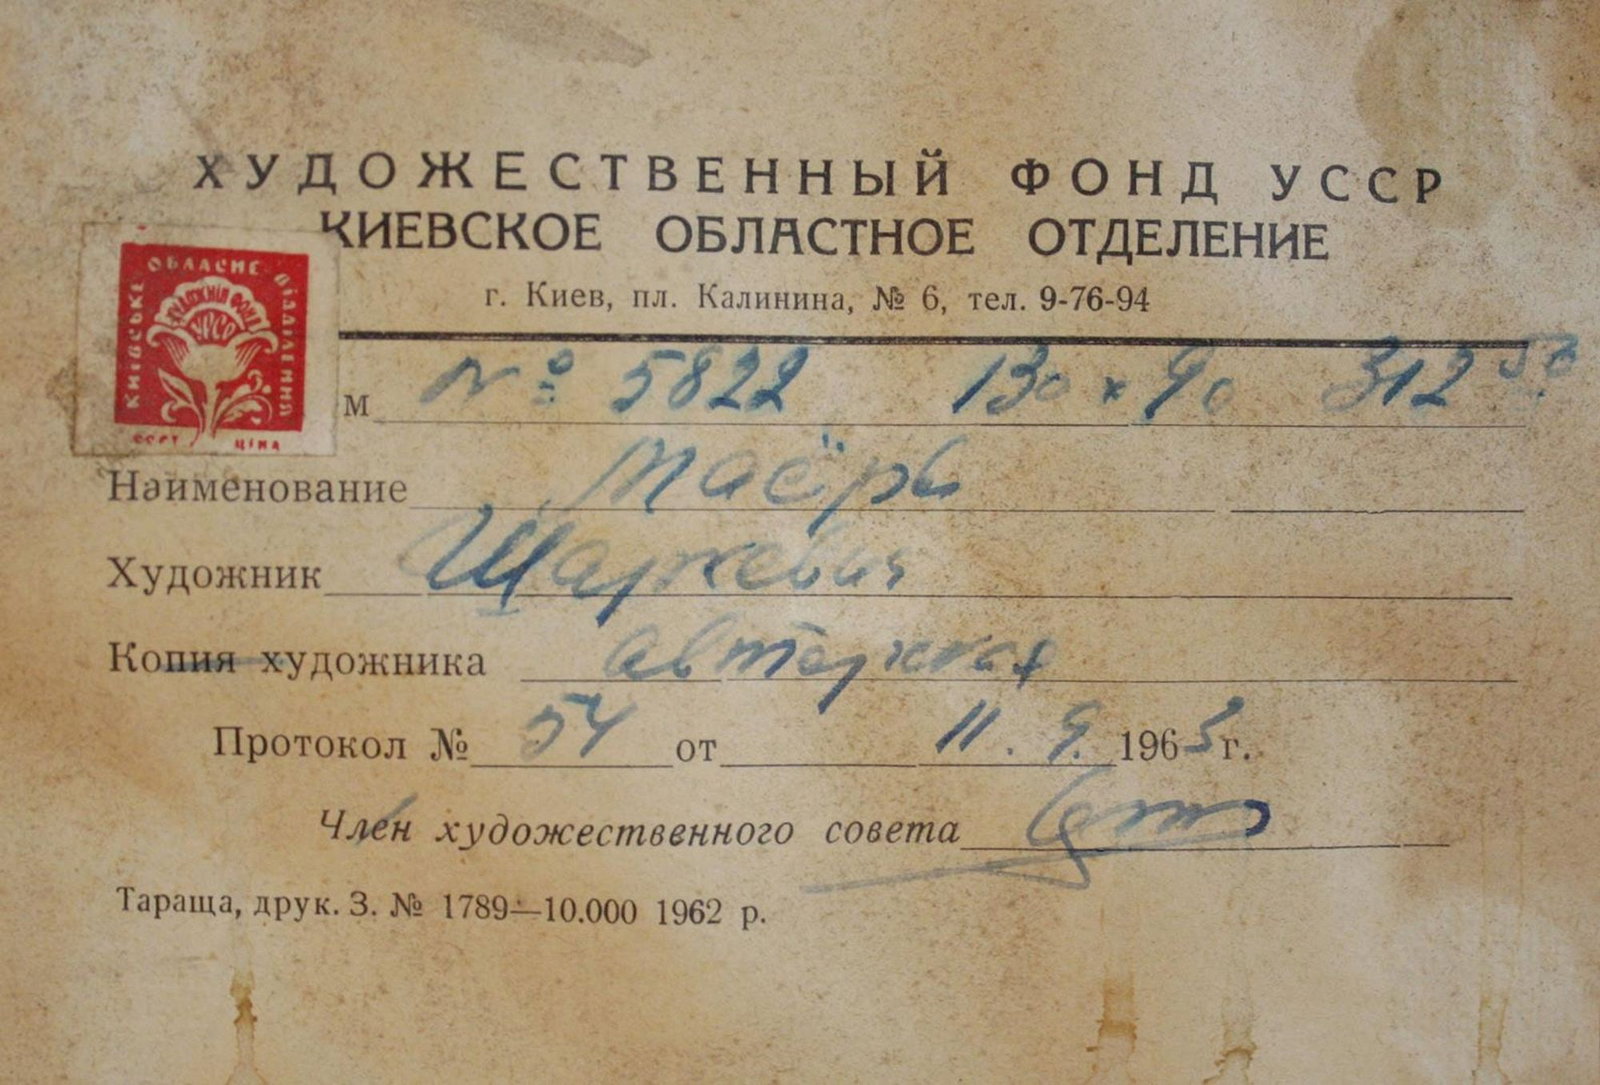 ХУДОЖЕСТВЕННЫЙ ФОНД УССР
КИЕВСКОЕ ОБЛАСТНОЕ ОТДЕЛЕНИЕ
г. Киев, пл. Калинина, № 6, тел. 9-76-94
КИЇВСЬКЕ ОБЛАСНЕ ВІДДІЛЕННЯ
ХУДОЖНІЙ ФОНД
УРСР
СОРТ ЦІНА
м № 5822 130 x 90 312 50
Наименование Маёры
Художник
Копия художника авторская
Протокол № 54 от 11. 9. 1963 г.
Член художественного совета
Тараща, друк. З. № 1789—10.000 1962 р.